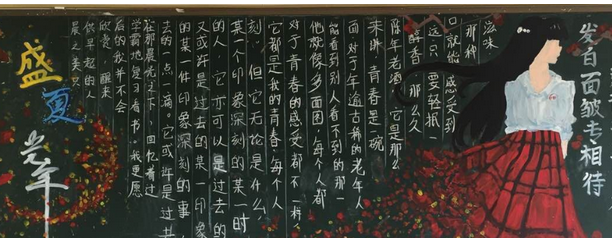 盛夏
光年
晨之美只
供早起的人
欣赏，醒来
后的我并不会
复习看书。我更愿
在那晨光之下，回忆着过
去的一点一滴。它或许是过去
的某一件印象深刻的事
又或许是过去的某一印象
的人，它亦可以是过去的
某一个印象深刻的某一时
刻，但它无论是什么
它都是我的青春，每个人
对于青春的感受都不一样，
他就像多面图，每个人都
能看到别人看不到的那一
面对于年逾古稀的老年人
来讲，青春是一碗
陈年老酒，它是那么
醇香 那么久
远只 要轻抿一
口就能感受到
那种
滋味
相待